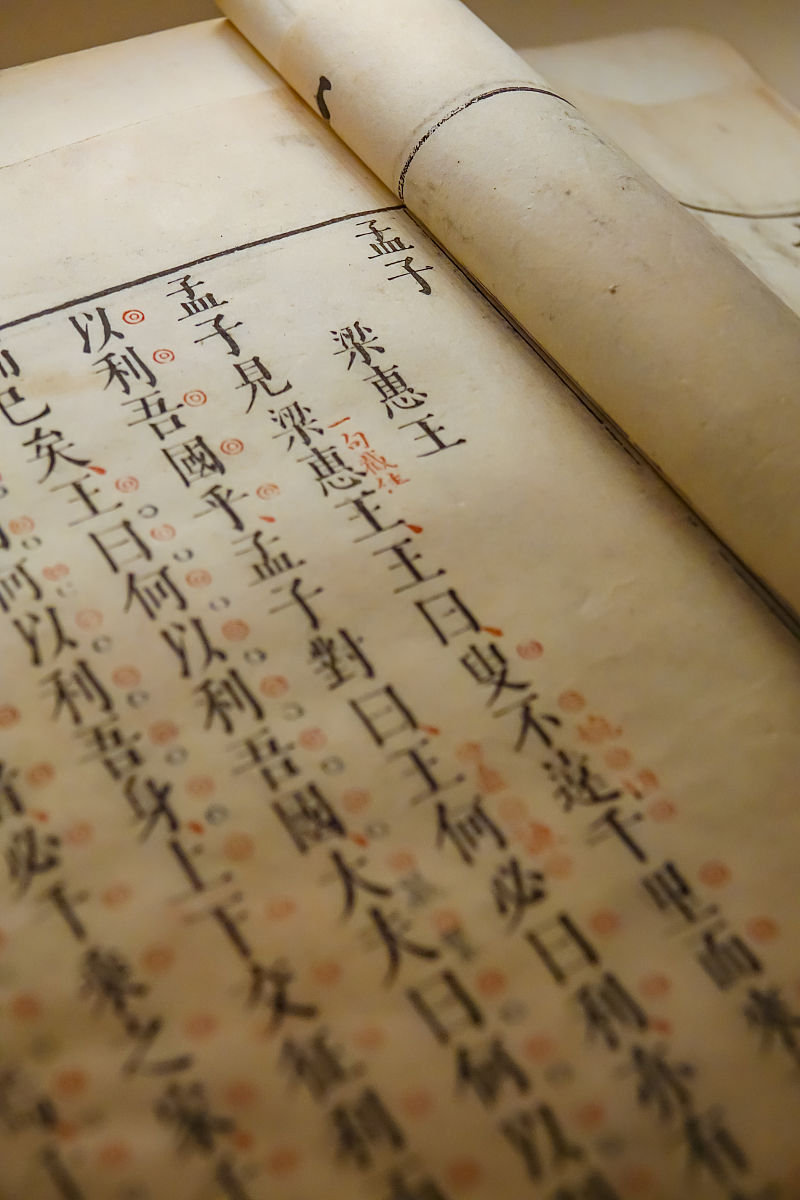 孟子
梁惠王
孟子見梁惠王王曰叟不遠千里而來
一句截住
以利吾國乎孟子對曰王何必曰利亦有
而巳矣王曰何以利吾國大夫曰何以
何以利吾身上下交征利
必千乘之家